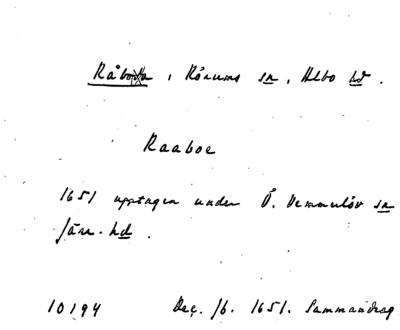 Råboda, Rörums sn, Albo hd.
Raaboe
1651 upptagen under Ö. Vemmerlöv sn
Järr. hd.
10194 Dec. jb. 1651. Sammandrag